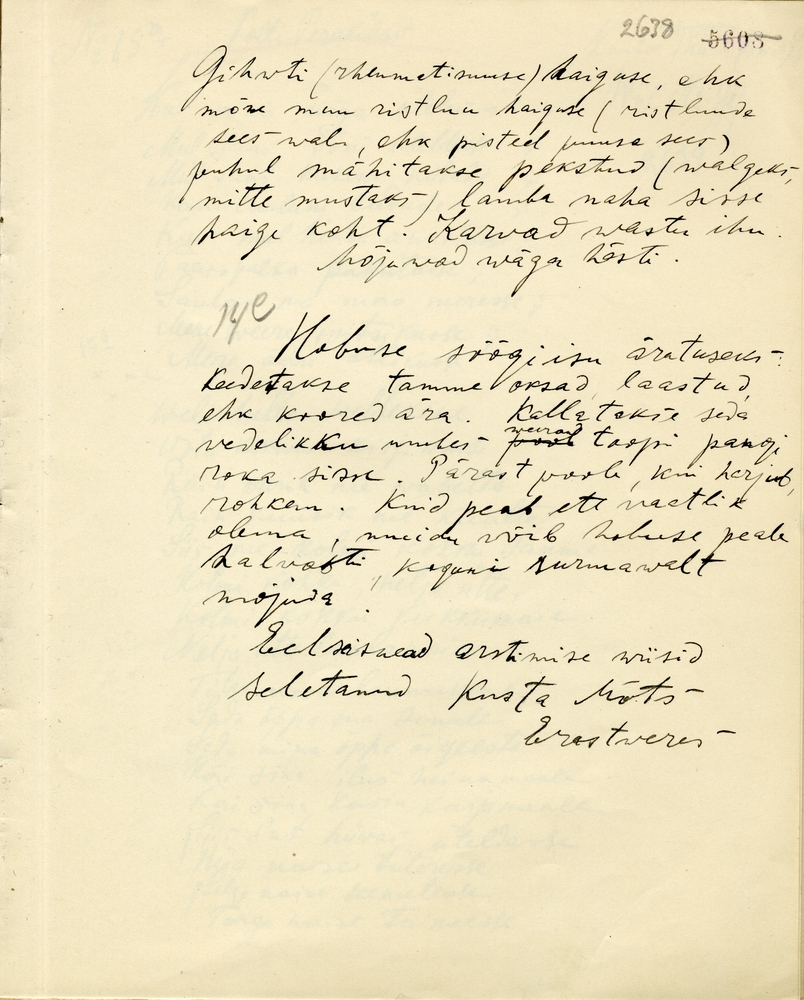 2638 5608
Gihwti (rheumatismuse) haiguse, ehk
mõne muu ristluu haiguse (ristluude
sees walu, ehk pisted puusa sees)
puhul mähitakse pekstud (walgeks,
mitte mustaks) lamba naha sisse
haige koht. Karvad wastu ihu.
Mõjuwad wäga hästi.
14e
Hobuse söögiisu äratuseks:
Keedetakse tamme oksad, laastud,
ehk koored ära. Kallatakse seda
vedelikku umbes pool toopi pangi
roka sisse. Pärast poole, kui harjub,
rohkem. Kuid peab ett vaatlik
olema, muidu võib hobuse peale
halvasti, koguni surmawalt
mõjuda.
Eelseiswad arstimise wiisid
seletanud Kusta Mõts
Erastweres